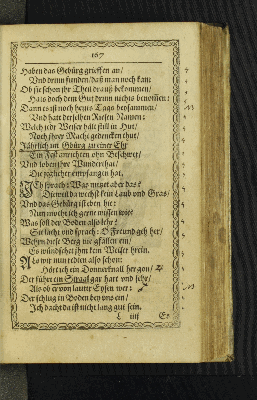 167
Haben das Gebürg grieffen an/
Und drinn funden/daß man noch kan:
Ob sie schon ihr Theil drauß bekommen/
Hats doch dem Gut drinn nichts benommen:
Dann es ist noch heuts Tags beysammen/
Und hatt derselben Riesen Namen:
Welch jedr Weiser hält still in Hut/
Noch ihrer Macht gedencken thut/
Jährlich im Gbürg zu einer Ehr
Ein Fest anrichten ohn Beschwer/
Und loben ihre Wunderthat/
Die jeglicher empfangen hat.
ICh sprach: Was nutzet aber das?
Dieweil da wechst kein Laub und Gras/
Und das Gebürg ist eben hie:
Nun möcht ich gerne wissen wie?
Was soll der Boden also sehr?
Sie lacht und sprach: O Freund geh her/
Wehm diese Berg nie gfallen ein/
Es wündschet ihm kein Weiser hrein.
Als wir nun redten also schon:
Hört ich ein Donnerknall her gon/
Der führt ein Straal gar hart und sehr/
Als ob er von lauter Eysen wer:
Der schlug in Boden bey uns ein/
Ich dacht da ist nicht lang gut sein.
L iiij Er